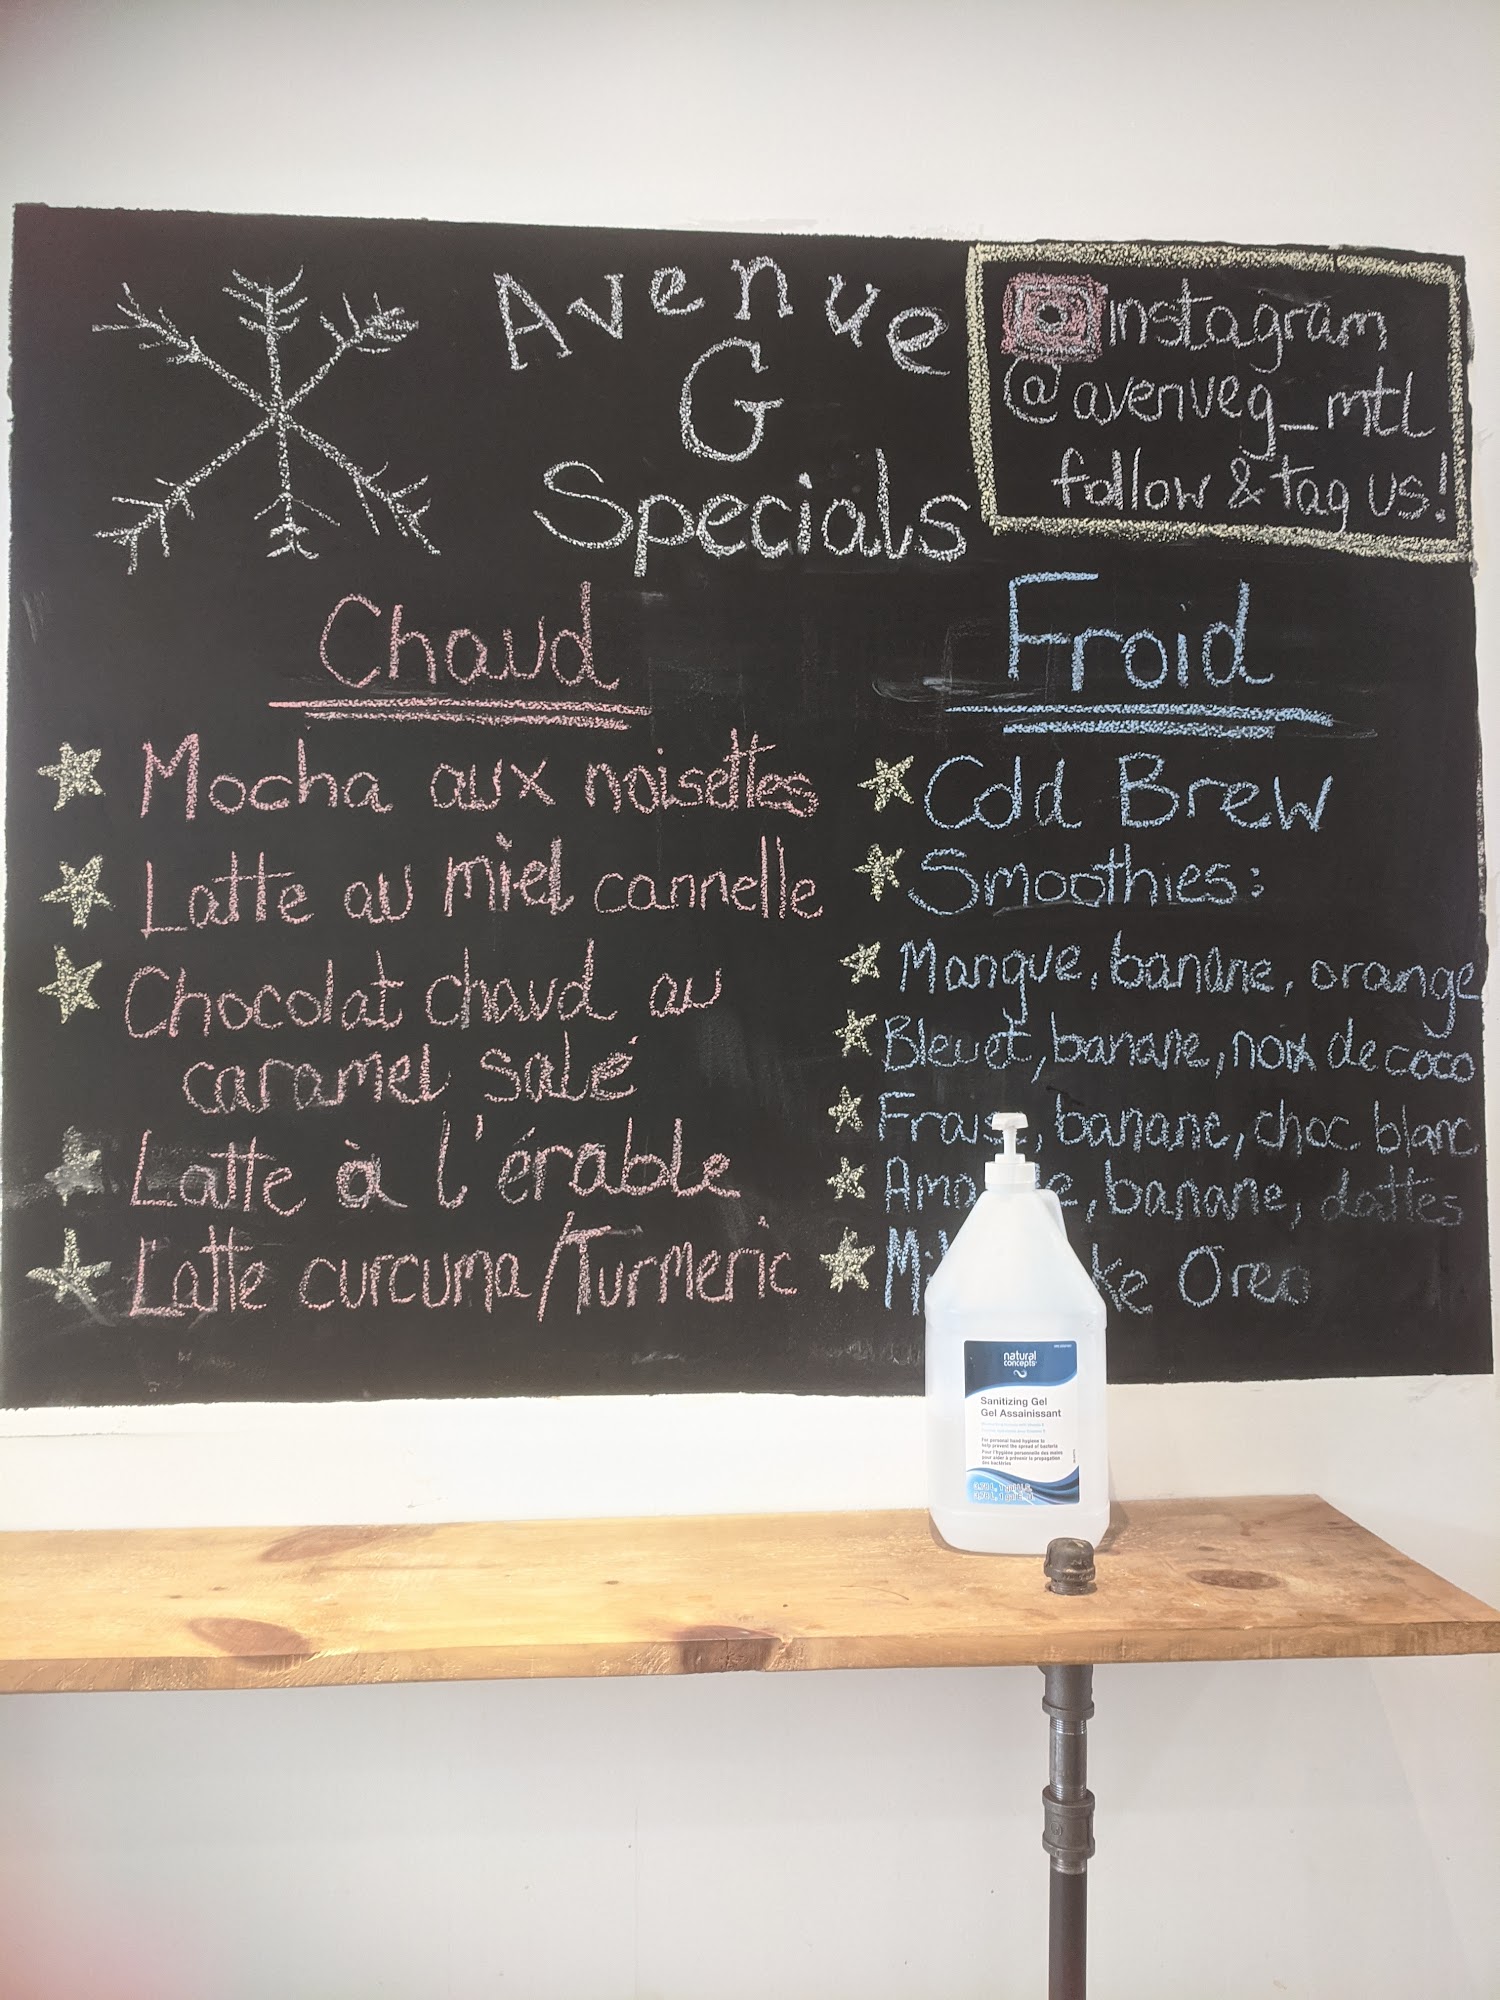 Avenue
G
Specials
Instagram
@avenueg_mtl
follow & tag us!
Chaud
Mocha aux noisettes
Latte au miel cannelle
Chocolat chaud au
caramel salé
Latte à l'érable
Latte curcuma/Turmeric
Froid
Cold Brew
Smoothies:
Mangue, banane, orange
Bleuet, banane, noix de coco
Fraise, banane, choc blanc
banane, dattes
Oreo
natural
concepts
Sanitizing Gel
Gel Assainissant
For personal hand hygiene to
help prevent the spread of bacteria
Pour l'hygiène personnelle des mains
pour aider à prévenir la propagation
des bactéries